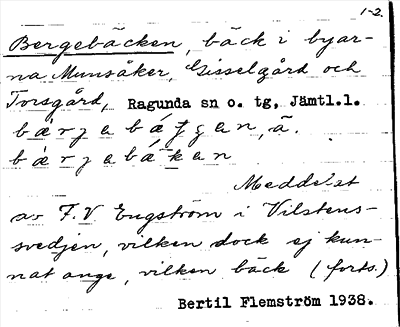 1-2.
Bergebäcken, bäck i byar-
na Munsåker, Gisselgård och
Torsgård, Ragunda sn o. tg, Jämtl.l.
bærjabáʃʃen, ä.
bærjabákan
Meddelat
av F.V. Engström i Vilstens-
svedjen, vilken dock ej kun-
nat ange, vilken bäck (forts.)
Bertil Flemström 1938.